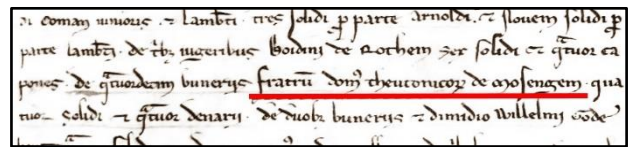 coman iunioris . ⁊ Lambti . tres solidi ꝑ parte arnoldi . ⁊ Nouem solidi ꝑ
parte lambti . de tbȝ iugeribus Boidini de Rothem Sex solidi ⁊ qtuor ca
pones . de qtuordecim buneriis fratrū dom theutonicoꝝ de Mosengem . qua
tuor Solidi ⁊ qtuor denarii . de duobȝ buneriis ⁊ dimidio Willelmi Gode